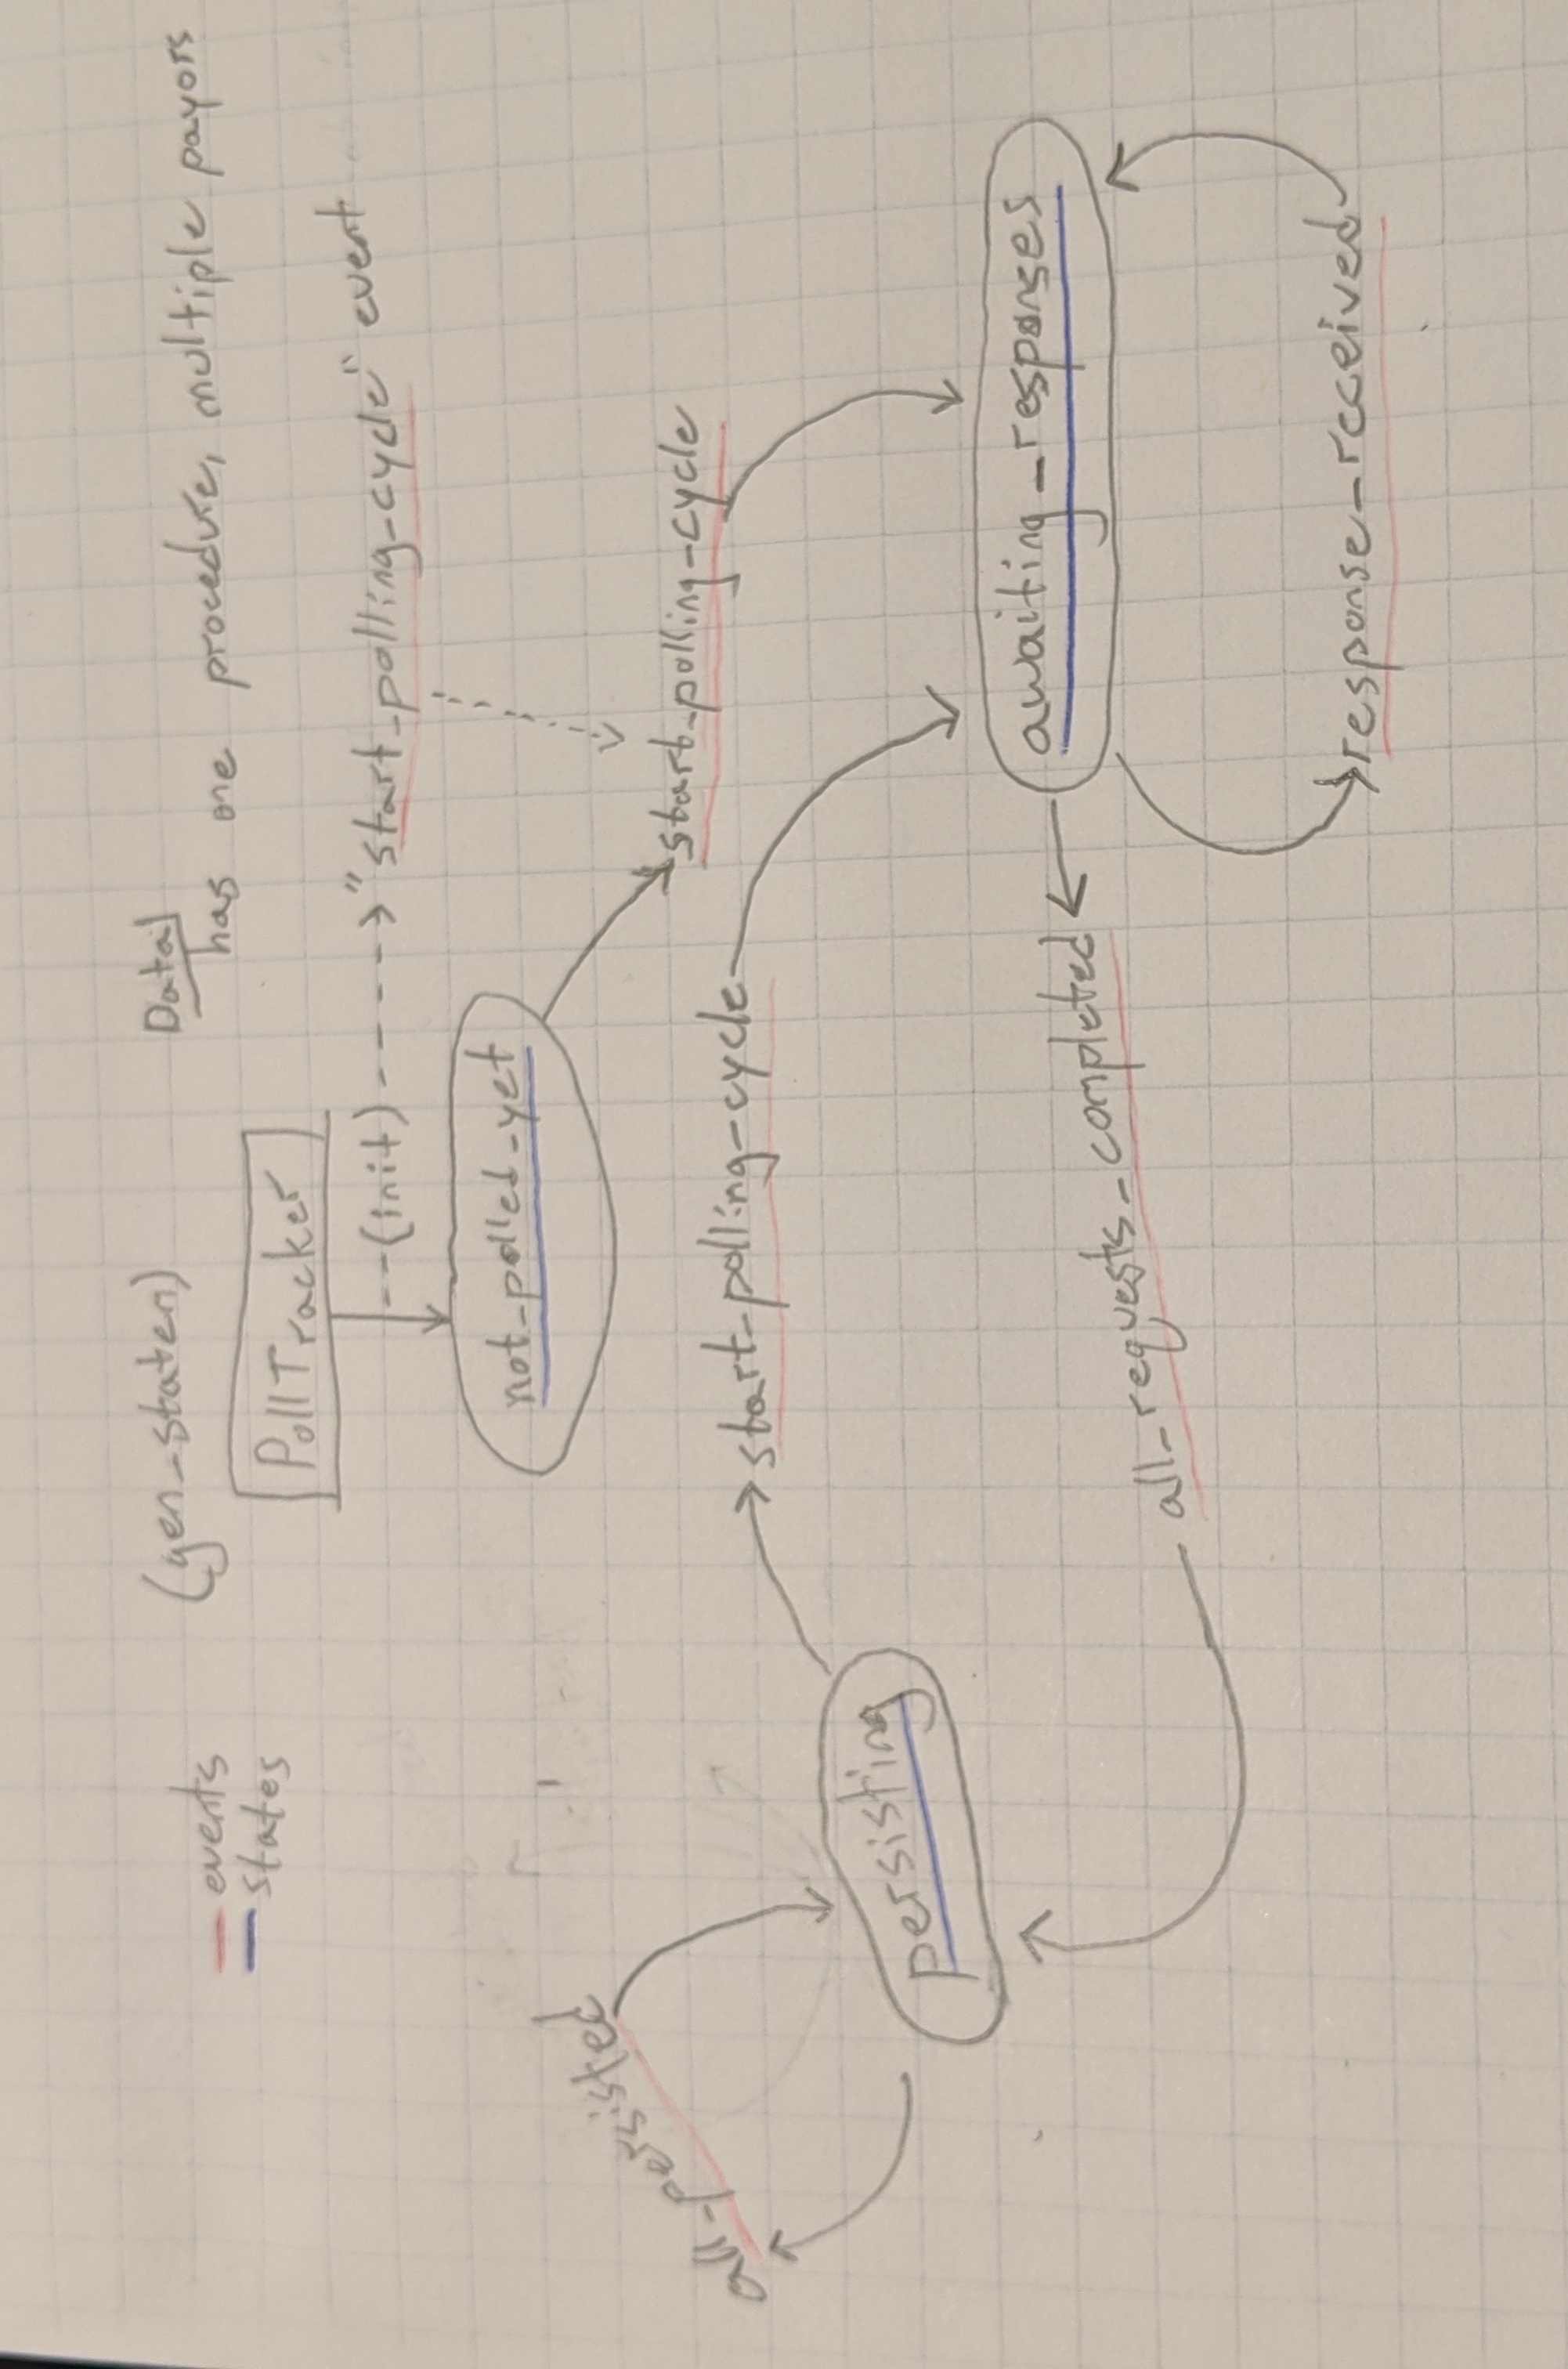 events
states
(gen_statem)
Data
has one procedure, multiple payors
PollTracker
(init)
"start_polling_cycle" event
not_polled_yet
all_persisted
start_polling_cycle
start_polling_cycle
persisting
awaiting_responses
all_requests_completed
response_received